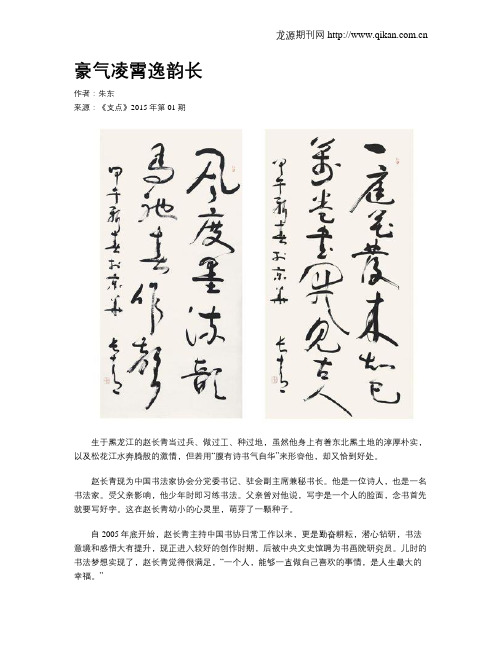 龙源期刊网 http://www.qikan.com.cn
豪气凌霄逸韵长
作者：朱东
来源：《支点》2015年第01期
一庭花發来知己
萬卷書開見古人
甲午新春於京華 长青
风度墨流
馬池春作聲
甲午新春於京華 长青
生于黑龙江的赵长青当过兵、做过工、种过地，虽然他身上有着东北黑土地的淳厚朴实，
以及松花江水奔腾般的激情，但若用“腹有诗书气自华”来形容他，却又恰到好处。
赵长青现为中国书法家协会分党委书记、驻会副主席兼秘书长。他是一位诗人，也是一名
书法家。受父亲影响，他少年时即习练书法。父亲曾对他说，写字是一个人的脸面，念书首先
就要写好字。这在赵长青幼小的心灵里，萌芽了一颗种子。
自2005年底开始，赵长青主持中国书协日常工作以来，更是勤奋耕耘，潜心钻研，书法
意境和感悟大有提升，现正进入较好的创作时期，后被中央文史馆聘为书画院研究员。儿时的
书法梦想实现了，赵长青觉得很满足，“一个人，能够一直做自己喜欢的事情，是人生最大的
幸福。”